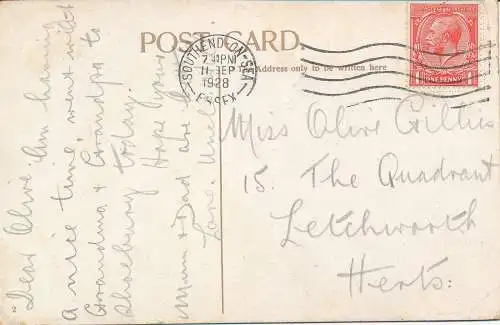 POST CARD.
The Address only to be written here
SOUTHEND-ON-SEA
7 PM
11 SEP
1928
ESSEX
ONE PENNY
Miss Olive
15. The Quadrant
Letchworth
Herts.
Dear Olive Am having
a nice time went with
Grandma & Grandpa to
Shoebury today.
Hope your
Mum & Dad are
Love.